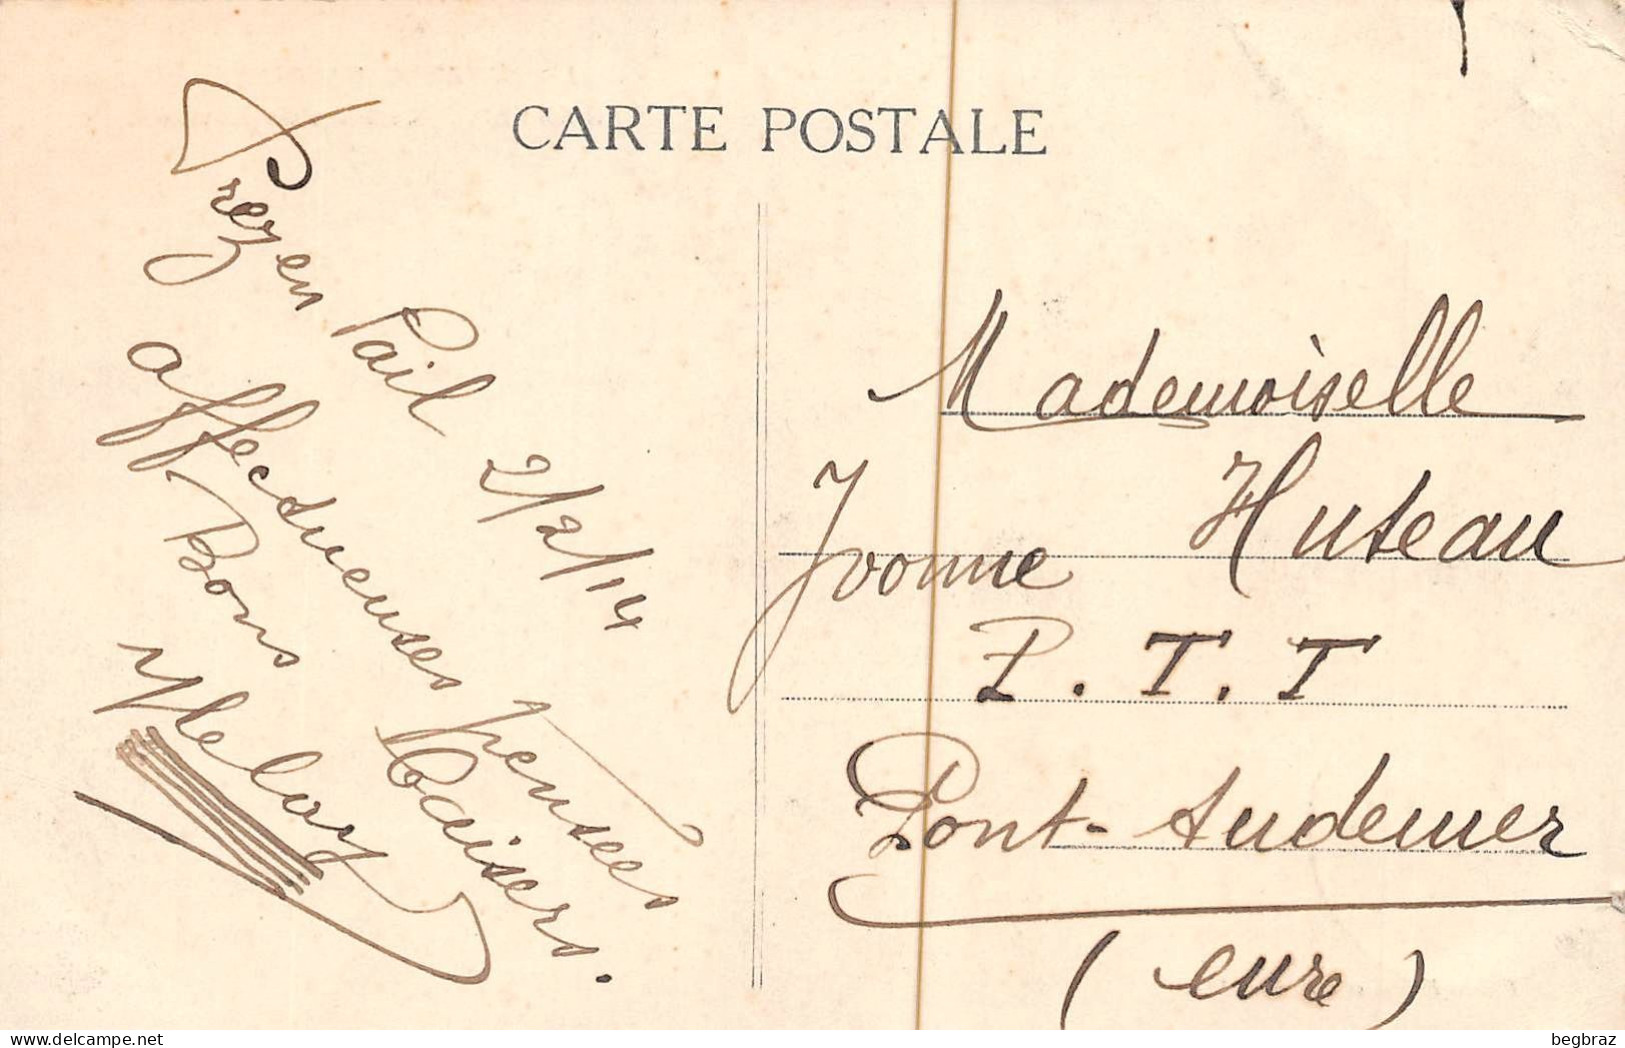 CARTE POSTALE
Prez en Pail 2/2/14
affectueuses pensées
Bons baisers.
Mademoiselle
Yvonne Huteau
P. T. T
Pont-Audemer
(eure)
begbraz